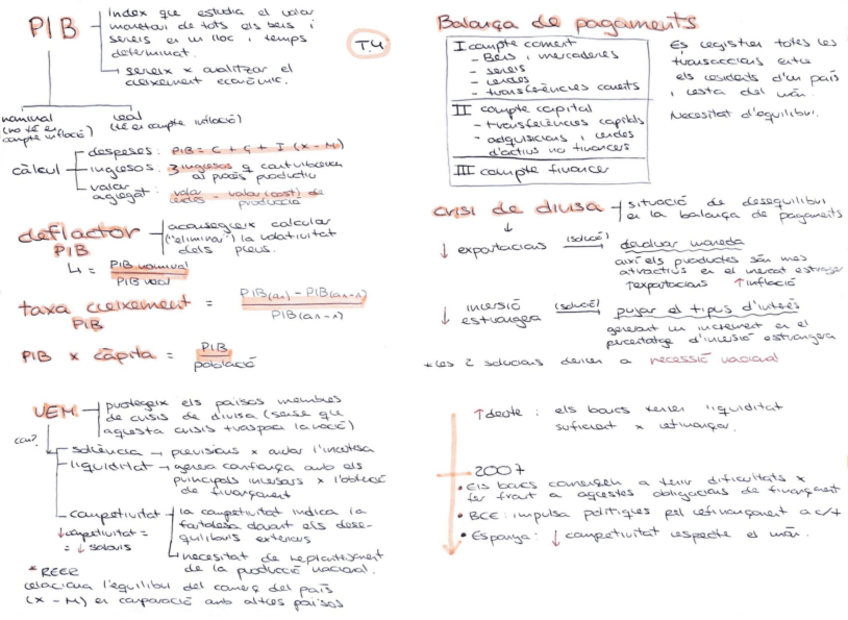 PIB
índex que estudia el valor
monetari de tots els béns i
serveis en un lloc i temps
determinat.
serveix x analitzar el
creixement econòmic.
T.4
nominal
(no té en
compte inflació)
real
(té en compte inflació)
càlcul
despeses: PIB = C + G + I (X - M)
ingresos: 3 ingresos q contribueixen
al procés productiu
valor
agregat:
valor - valor (cost) de
producció
deflactor
PIB
aconsegueix calcular
("eliminar") la volativitat
dels preus.
= PIB nominal
PIB real
taxa creixement =
PIB
PIB(an) - PIB(an-1)
PIB(an-1)
PIB x càpita = PIB
població
UEM
protegeix els països membres
de crisis de divisa (sense que
aquesta crisis traspassi la nació)
com?
solvència → previsions x evitar l'incertesa
liquiditat → genera confiança amb els
principals inversors x l'obtenció
de finançament
competitivitat
la competitivitat indica la
fortalesa davant els dese-
quilibris externs
↓competitivitat =
= ↓ salaris
necesitat de replantejament
de la producció nacional.
*REER
relaciona l'equilibri del comerç del país
(X - M) en comparació amb altres països
Balança de pagaments
I compte corrent
- Béns i mercaderies
- serveis
- rendes
- transferències corrents
II compte capital
- transferències capitals
- adquisicions i vendes
d'actius no financers
III compte financer
Es registren totes les
transaccions entre
els residents d'un país
i resta del món.
Necesitat d'equilibri.
crisi de divisa
situació de desequilibri
en la balança de pagaments
↓ exportacions (solució) devaluar moneda
així els productes són més
atractius en el mercat estranger
↑exportacions ↑inflació
↓ inversió
estrangera
(solució) pujar el tipus d'interés
generant un increment en el
percentatge d'inversió estrangera
* Les 2 solucions deriven a recessió nacional
↑deute: els bancs tenien liquiditat
suficient x refinançar.
2007
• Els bancs comencen a tenir dificultats x
fer front a aquestes obligacions de finançament
• BCE: impulsa polítiques pel refinançament a c/t
• Espanya: ↓ competitivitat respecte el món.